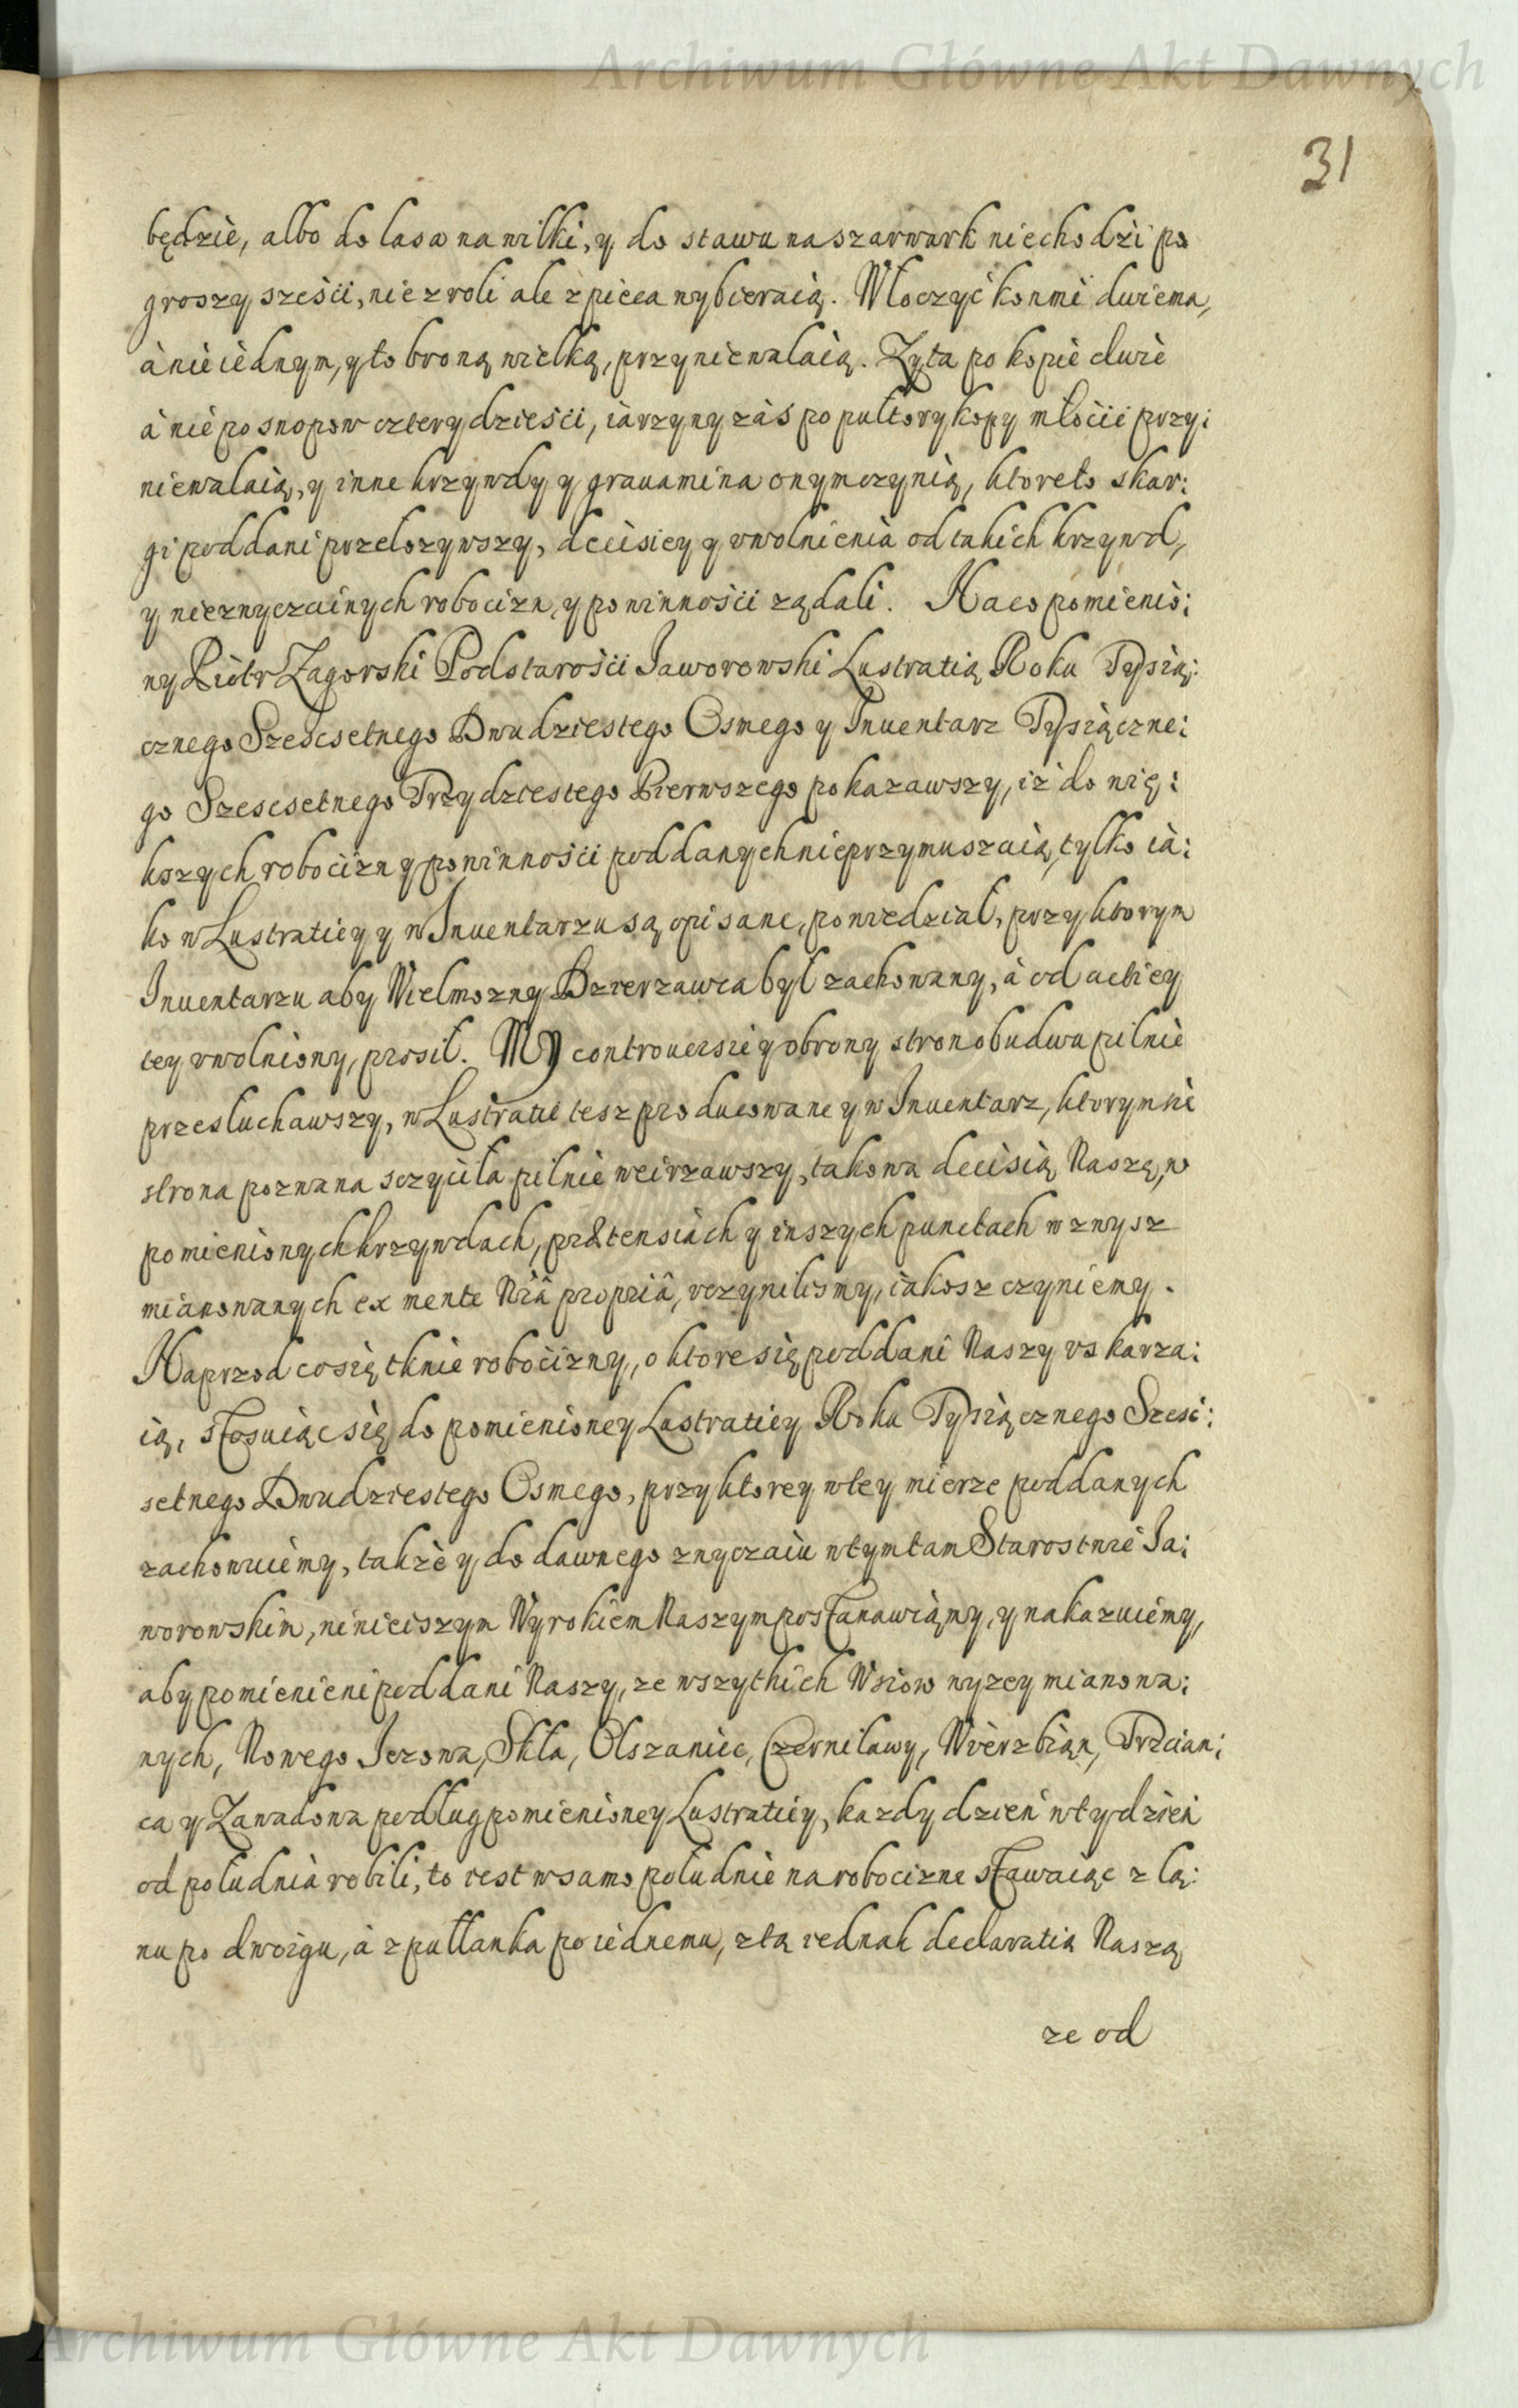 Archiwum Główne Akt Dawnych
31
będzie, albo do lasa na wilki, y do stawu na szarwark niechodzi po
groszy sześci, nie z roli ale z pieca wybieraią. Włoczyć konmi dwiema,
à nie iednym, y to broną wielką, przyniewalaią. Zyta po kopie dwie
à nie po snopow czterydzieści, iarzyny zaś po pułtory kopy młocić przy:
niewalaią, y inne krzywdy y grauamina onym czynią, ktore to skar:
gi poddani przełozywszy, decisiey y vwolnienia od takich krzywd,
y niezwyczainych robocizn, y powinności ządali. Na co pomienio:
ny Piotr Zagorski Podstarości Jaworowski Lustratią Roku Tysią:
cznego Szescsetnego Dwudziestego Osmego y Inuentarz Tysiączne:
go Szescsetnego Trzydziestego Pierwszego pokazawszy, iż do wię:
kszych robocizn y powinności poddanych nieprzymuszaią, tylko ia:
ko w Lustratiey y w Inuentarzu są opisane, powiedział, przy ktorym
Inuentarzu aby Wielmozny Dzierzawca był zachowany, à od actiey
tey vwolniony, prosił. MY controuersie y obrony stron obudwu pilnie
przesłuchawszy, w Lustratie tesz producowane y w Inuentarz, ktorym sie
strona pozwana sczyciła pilnie weirzawszy, takowa decisią Naszą, w
pomienionych krzywdach, prætensiach y inszych punctach wzwysz
mianowanych ex mente Nrâ propriâ, vczynilismy, iakosz czyniemy.
Naprzod co się tknie robocizny, o ktore się poddani Naszy vskarza:
ią, stosuiąc się do pomienioney Lustratiey Roku Tysiącznego Szesć:
setnego Dwudziestego Osmego, przy ktorey w tey mierze poddanych
zachowuiemy, takze y do dawnego zwyczaiu w tym tam Starostwie Ja:
worowskim, ninieiszym Wyrokiem Naszym postanawiamy, y nakazuiemy,
aby pomienieni poddani Naszy, ze wszytkich Wsiow wyzey mianowa:
nych, Nowego Jezowa, Skła, Olszanice, Czernilawy, Wierzbian, Trzcian:
ca y Zawadowa podług pomienioney Lustratiey, kazdy dzień w tydzień
od południa robili, to iest w samo południe na robocizne stawaiąc z ła:
nu po dwoigu, à z pułłanka po iednemu, z tą iednak declaratią Naszą
ze od
Archiwum Główne Akt Dawnych